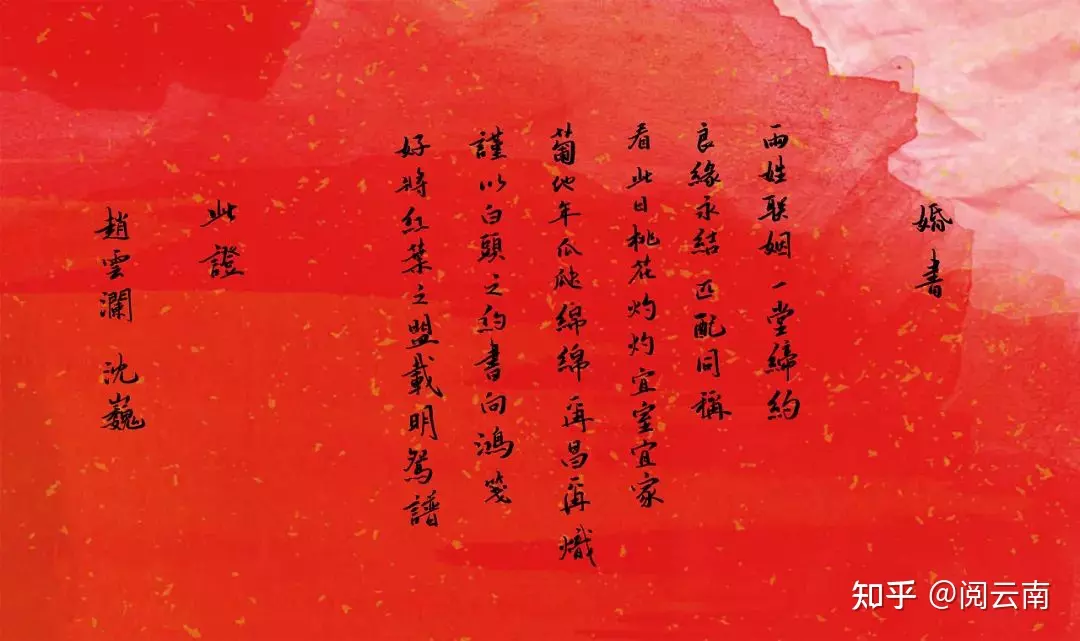 婚書
兩姓联姻一堂締約
良緣永結匹配同稱
看此日桃花灼灼宜室宜家
蔔他年瓜瓞綿綿再昌再熾
謹以白頭之約書向鴻箋
好將紅葉之盟載明鴛譜
此證
趙雲瀾 沈巍
知乎 @阅云南